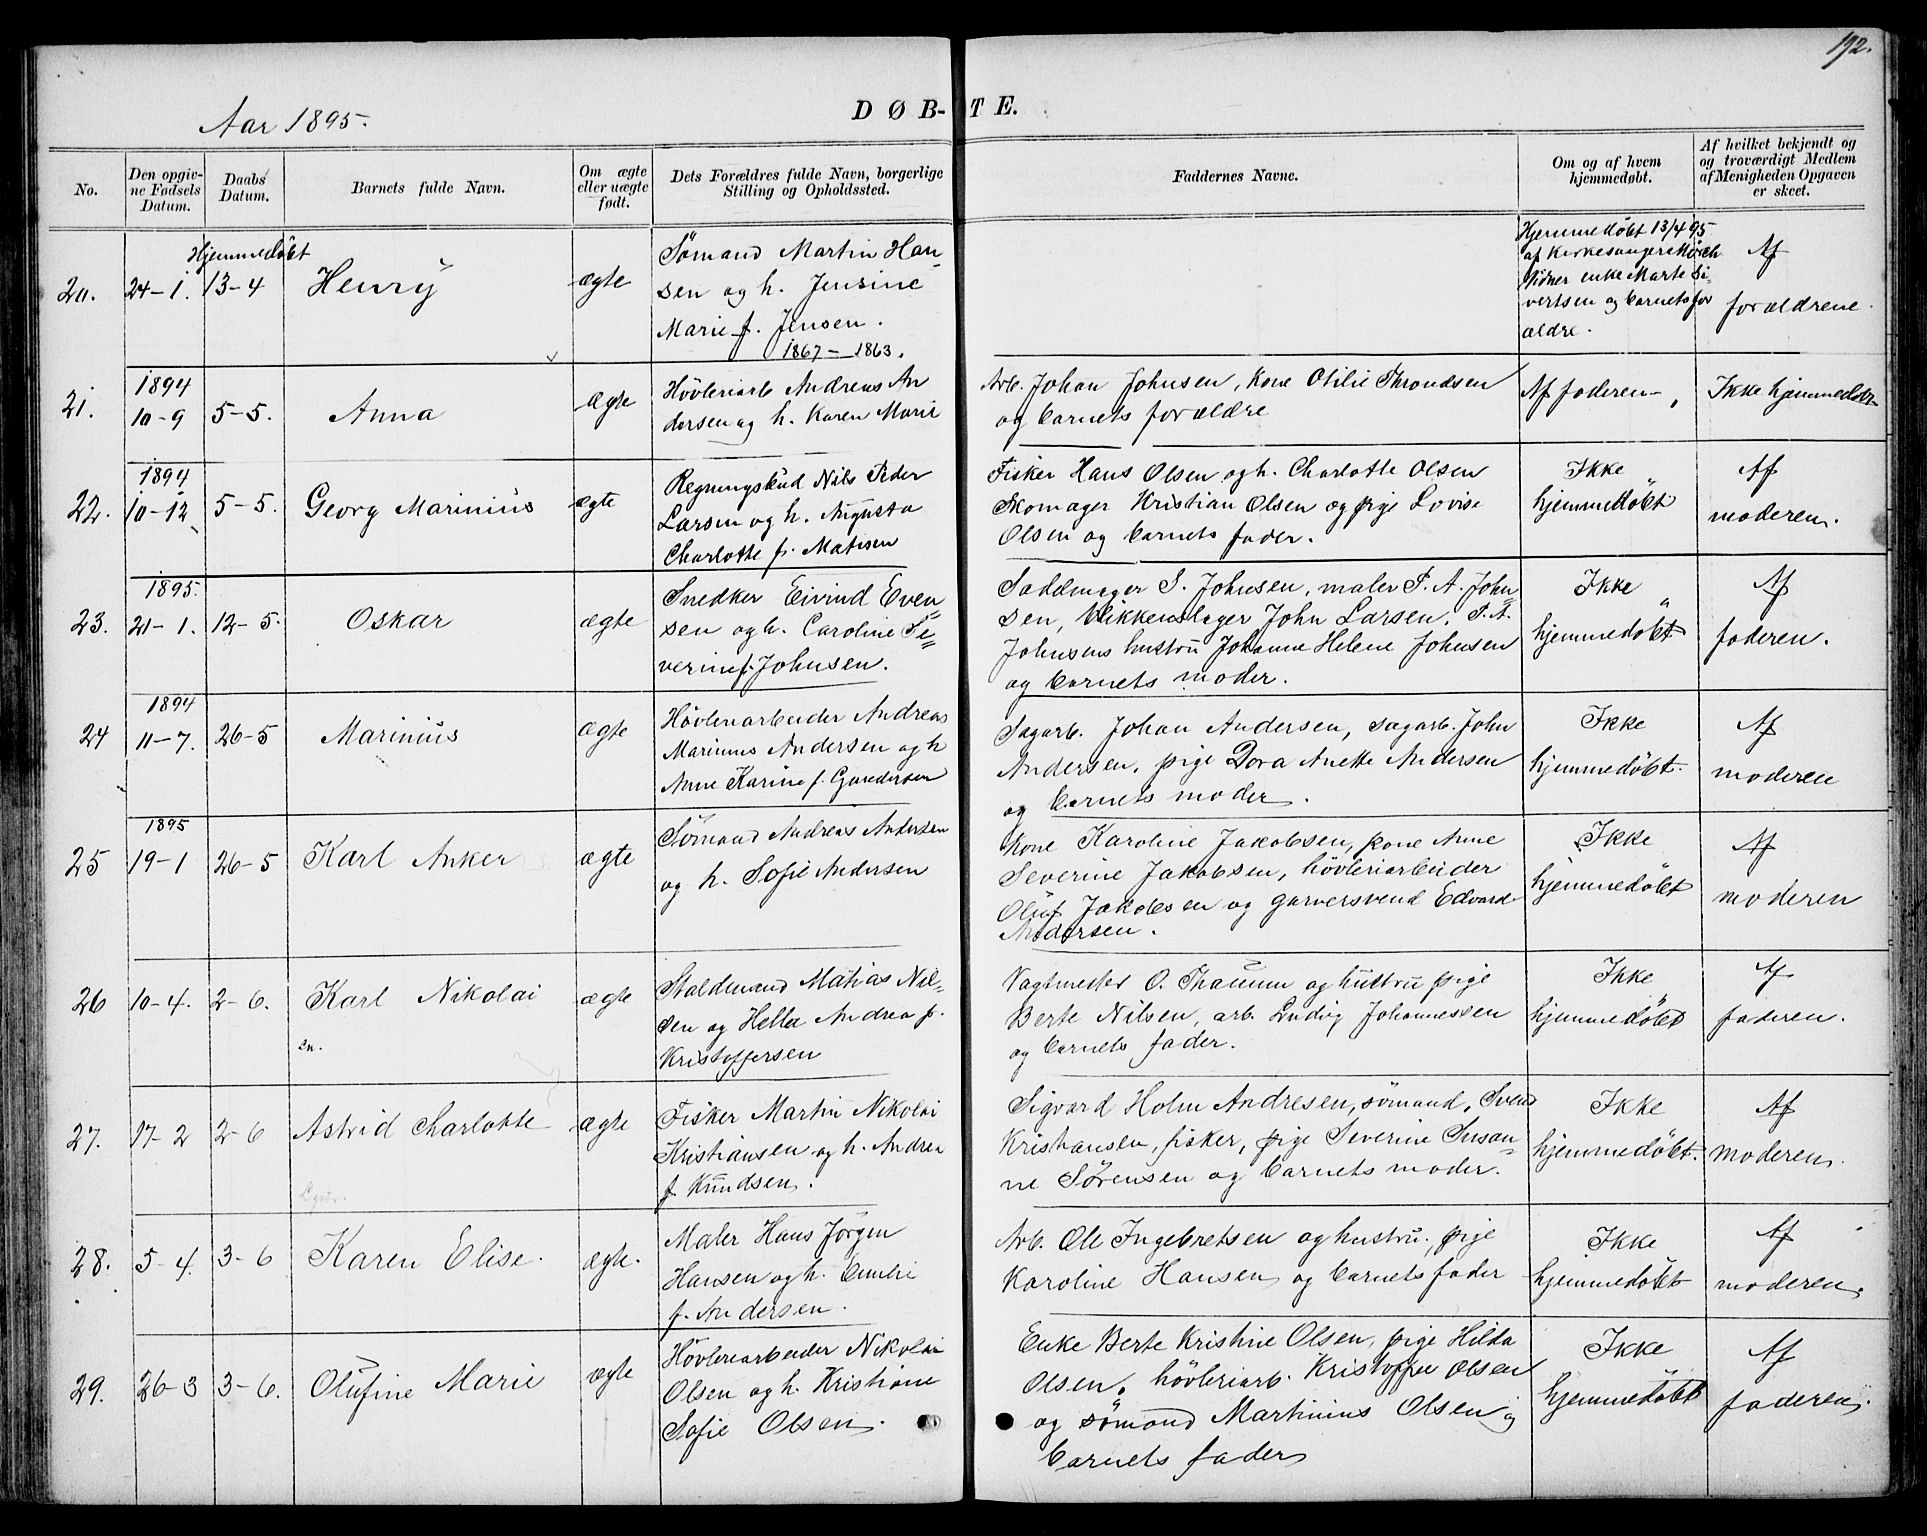 192.
Aar 1895.
DØB-TE.
No.
Den opgiv-
ne Fødsels
Datum.
Daabs
Datum.
Barnets fulde Navn.
Om ægte
eller uægte
født.
Dets Forældres fulde Navn, borgerlige
Stilling og Opholdssted.
Faddernes Navne.
Om og af hvem
hjemmedøbt.
Af hvilket bekjendt og
og troværdigt Medlem
af Menigheden Opgaven
er skeet.
20.
24-1.
Hjemmedøbt
13-4
Henry
ægte
Sømand Martin Han-
sen og h. Jensine
Marie f. Jensen.
1867 - 1863.
Hjemmedøbt 13/4 95
af Kirkesanger
enke Marte Si-
vertsen og barnets for
ældre.
Af
forældrene
21.
1894
10-9
5-5.
Anna
ægte
Høvleriarb Andreas An
dersen og h. Karen Marie
Arb. Johan Johnsen, Kone Otilie Throndsen
og barnets forældre
Af faderen
Ikke hjemmedøbt
22.
1894
10-12
5-5.
Georg Marinius
ægte
Regningsbud Nils Peder
Larsen og h. Augusta
Charlotte f. Matisen
Fisker Hans Olsen og h. Charlotte Olsen
Skomager Kristian Olsen og pige Lovise
Olsen og barnets fader.
Ikke
hjemmedøbt
Af
moderen.
23.
1895.
21-1.
12-5.
Oskar
ægte
Snedker Eivind Even-
sen og h. Caroline Se-
verine f. Johnsen.
Saddmager S. Johnsen, maler P. A. John-
sen, Blikkenslager John Larsen, P. A.
Johnsens hustru Johanne Helene Johnsen
og barnets moder.
Ikke
hjemmedøbt
Af
faderen.
24
1894
11-7.
26-5
Marinius
ægte
Høvleriarbeider Andreas
Marinius Andersen og h
Anne Karine f. Gundersen
Sagarb. Johan Andersen, sagarb. John
Andersen, pige Dora Anette Andersen
og barnets moder.
Ikke
hjemmedøbt.
Af
moderen
25
1895
19-1
26-5
Karl Anker
ægte
Sømand Andreas Andersen
og h. Sofie Andersen
Kone Karoline Jakobsen, kone Anne
Severine Jakobsen, høvleriarbeider
Oluf Jakobsen og garversvend Edvard
Andersen.
Ikke
hjemmedøbt
Af
moderen
26
10-4.
2-6.
Karl Nikolai
ægte
Staldmand Matias Nil-
sen og Hella Andrea f.
Kristoffersen
Vagtmester O. Thaumm og hustru pige
Berte Nilsen, arb. Ludvig Johannessen
og barnets fader.
Ikke
hjemmedøbt
Af
faderen.
27.
17-2
2-6
Astrid Charlotte
ægte
Fisker Martin Nikolai
Kristiansen og h. Andrea
f. Knudsen.
Sigvard Holm Andresen, sømand, Sven
Kristiansen, fisker, pige Severine Susan-
ne Sørensen og barnets moder.
Ikke
hjemmedøbt.
Af
moderen.
28.
5-4.
3-6
Karen Elise.
ægte.
Maler Hans Jørgen
Hansen og h. Emilie
f. Andersen.
Arb. Ole Ingebretsen og hustru, pige
Karoline Hansen og barnets fader
Ikke
hjemmedøbt
Af
moderen.
29.
26-3
3-6.
Olufine Marie
ægte
Høvleriarbeider Nikolai
Olsen og h. Kristiane
Sofie Olsen.
Enke Berte Kristine Olsen, pige Hilda
Olsen, høvleriarb. Kristoffer Olsen
og sømand Martinius Olsen og
barnets fader
Ikke
hjemmedøbt
Af
faderen.